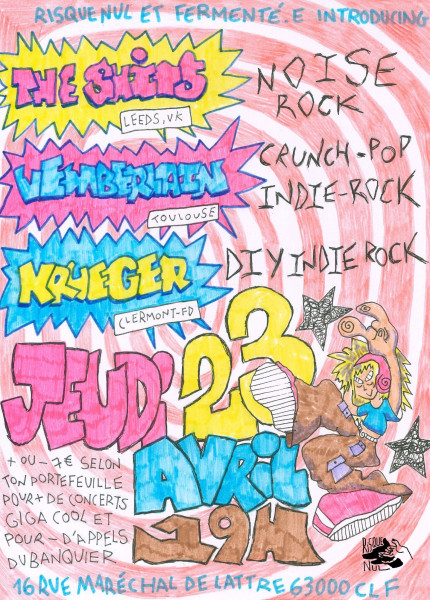 RISQUE NUL ET FERMENTÉ.E INTRODUCING
THE SHITS
LEEDS, UK
NOISE
ROCK
WEMBERLAIN
TOULOUSE
CRUNCH-POP
INDIE-ROCK
KRUEGER
CLERMONT-FD
DIY INDIE ROCK
JEUDI 23
AVRIL
19H
+ OU - 7€ SELON
TON PORTEFEUILLE
POUR + DE CONCERTS
GIGA COOL ET
POUR - D'APPELS
DU BANQUIER
RISQUE
NUL
16 RUE MARÉCHAL DE LATTRE 63000 CLF